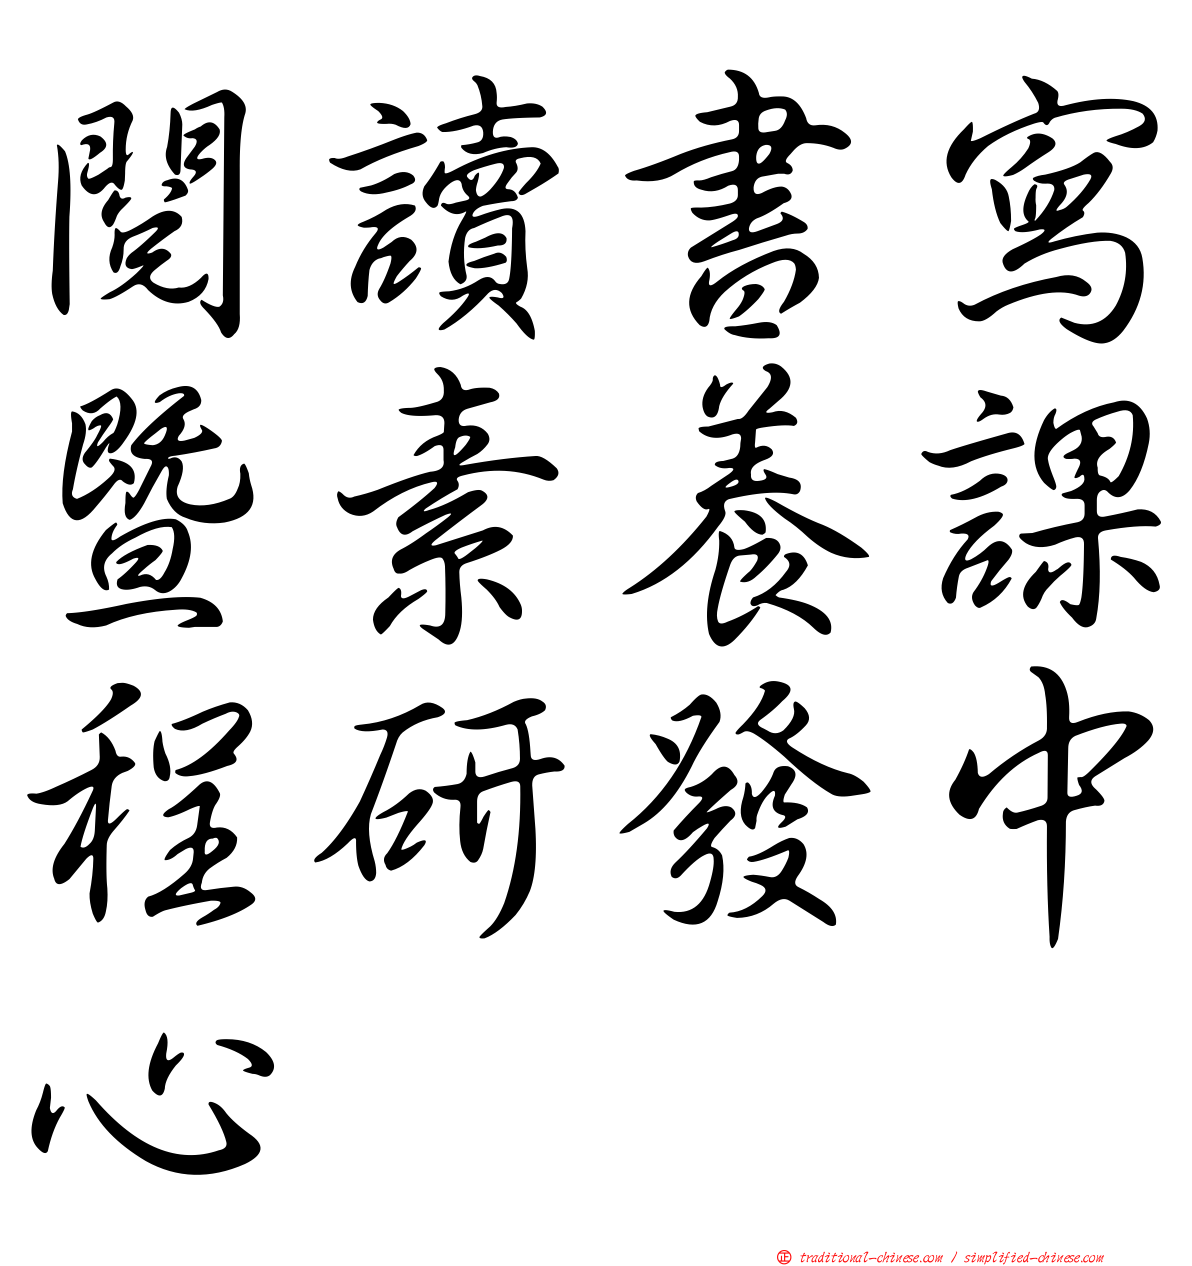 閱讀書寫
暨素養課
程研發中
心
正 traditional-chinese.com / simplified-chinese.com